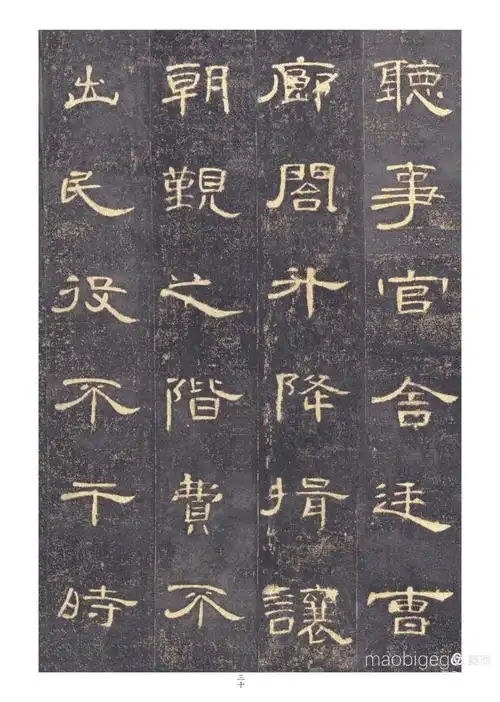 聽事官舍廷曹
廊閤升降揖讓
朝覲之階費不
出民役不干時
maobigeg
三十